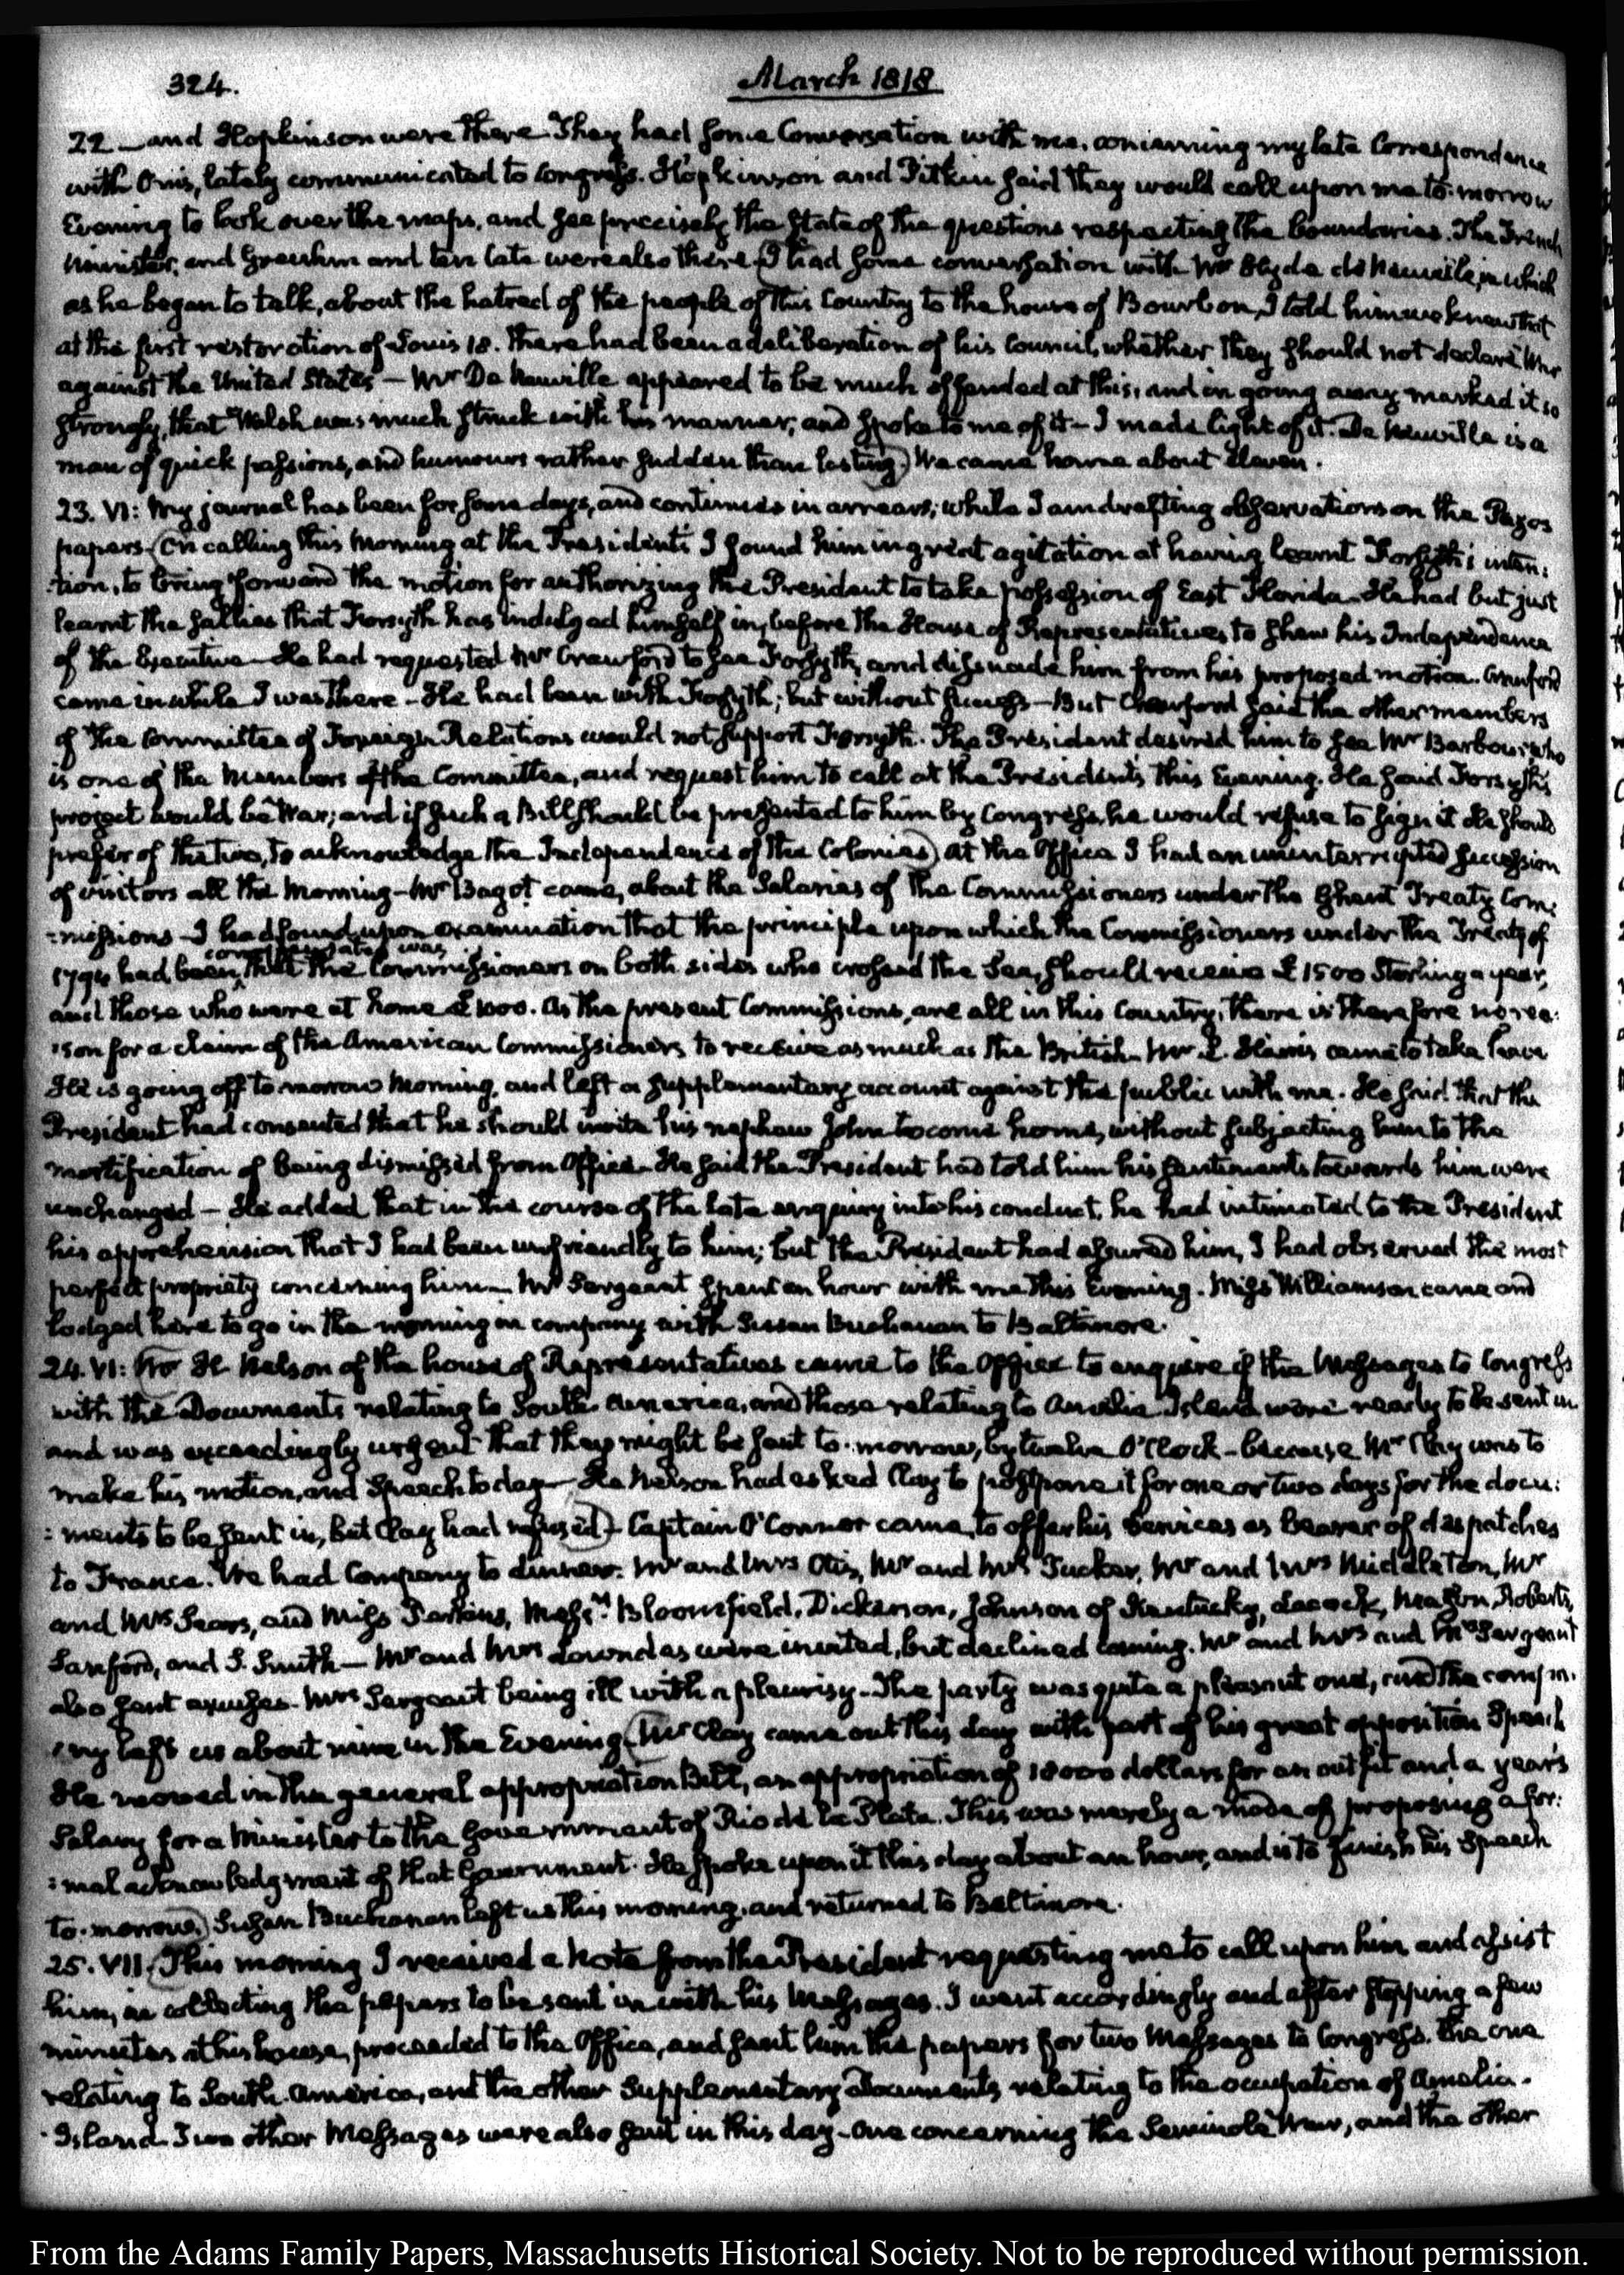 324.
March 1818.
22 — and Hopkinson were there. They had some Conversation with me, concerning my late Correspondence
with Onis, lately communicated to Congress. Hopkinson and Pitkin said they would call upon me to-morrow
Evening to look over the maps, and see precisely the state of the questions respecting the boundaries. The French
Minister, and Greuhm and ten Cate were also there (I had some conversation with Mr Hyde de Neuville, in which
as he began to talk, about the hatred of the people of this Country to the house of Bourbon, I told him we knew that
at the first restoration of Louis 18. there had been a deliberation of his Council, whether they should not declare War
against the United States — Mr De Neuville appeared to be much offended at this, and in going away marked it so
strongly, that Walsh was much struck with his manner, and spoke to me of it — I made light of it. De Neuville is a
man of quick passions, and humours rather sudden than lasting.) We came home about Eleven.
23. VI: My journal has been for some days, and continues in arrears; while I am drafting observations on the Pazos
papers (On calling this Morning at the President's I found him in great agitation at having learnt Forsyth's inten:
:tion, to bring forward the motion for authorizing the President to take possession of East Florida. He had but just
learnt the sallies that Forsyth has indulged himself in, before the House of Representatives to shew his Independence
of the Executive — He had requested Mr Crawford to see Forsyth, and dissuade him from his proposed motion. Crawford
came in while I was there — He had been with Forsyth; but without success — But Crawford said the other members
of the Committee of Foreign Relations would not support Forsyth. The President desired him to see Mr Barbour, who
is one of the Members of the Committee, and request him to call at the President's this Evening. He said Forsyth's
project would be War; and if such a Bill should be presented to him by Congress, he would refuse to sign it. He should
prefer of the two, to acknowledge the Independence of the Colonies) At the Office I had an uninterrupted succession
of visitors all the Morning — Mr Bagot came, about the Salaries of the Commissioners under the Ghent Treaty Com:
:missions — I had found upon examination that the principle upon which the Commissioners under the Treaty of
compensated was
1794 had been, that the Commissioners on both sides who crossed the Sea, should receive £1500 Sterling a year,
and those who were at home £1000. As the present Commissions, are all in this Country, there is therefore no rea:
:son for a claim of the American Commissioners to receive as much as the British. Mr L. Harris came to take leave
He is going off to-morrow Morning, and left a supplementary account against the public with me. He said that the
President had consented that he should invite his nephew John to come home, without subjecting him to the
mortification of being dismissed from Office — He said the President had told him his sentiments towards him were
unchanged — He added that in the course of the late enquiry into his conduct, he had intimated to the President
his apprehension that I had been unfriendly to him; but the President had assured him, I had observed the most
perfect propriety concerning him — Mr Sergeant spent an hour with me this Evening. Miss Williamson came and
lodged here to go in the morning in company with Susan Buchanan to Baltimore.
24. VI: (Mr H. Nelson of the house of Representatives came to the Office to enquire if the Messages to Congress
with the Documents relating to South America, and those relating to Amelia Island were ready to be sent in
and was exceedingly urgent that they might be sent to-morrow, by twelve O'Clock — because Mr Clay was to
make his motion, and Speech to day — He Nelson had asked Clay to postpone it for one or two days for the docu:
:ments to be sent in, but Clay had refused) Captain O'Connor came, to offer his Services as bearer of despatches
to France. We had Company to dinner. Mr and Mrs Otis, Mr and Mrs Tucker, Mr and Mrs Middleton, Mr
and Mrs Sears, and Miss Perkins, Messrs Bloomfield, Dickerson, Johnson of Kentucky, Lacock, Mason, Roberts,
Sanford, and S. Smith — Mr and Mrs Lowndes were invited, but declined coming. Mr and Mrs and Sergeant
also sent excuses. Mrs Sergeant being ill with a pleurisy. The party was quite a pleasant one, and the comp
:ny left us about nine in the Evening (Mr Clay came out this day with part of his great opposition Speech
He moved in the general appropriation Bill, an appropriation of 18000 dollars for an outfit and a year's
Salary for a Minister to the Government of Rio de la Plata. This was merely a mode of proposing a for:
:mal acknowledgment of that Government. He spoke upon it this day about an hour, and is to finish his Speech
to-morrow) Susan Buchanan left us this morning, and returned to Baltimore.
25. VII. (This morning I received a Note from the President requesting me to call upon him and assist
him, in collecting the papers to be sent in with his Messages. I went accordingly and after stopping a few
minutes at his house, proceeded to the Office, and sent him the papers for two Messages to Congress. The one
relating to South America, and the other Supplementary Documents, relating to the occupation of Amelia
Island. Two other Messages were also sent in this day — One concerning the Seminole War, and the other
From the Adams Family Papers, Massachusetts Historical Society. Not to be reproduced without permission.